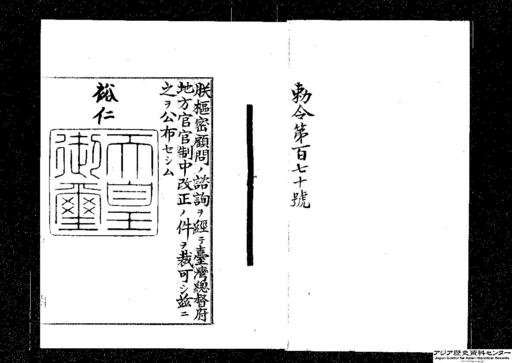 勅令第百七十號
朕樞密顧問ノ諮詢ヲ經テ臺灣總督府
地方官官制中改正ノ件ヲ裁可シ茲ニ
之ヲ公布セシム
裕仁
天皇
御璽
アジア歴史資料センター
Japan Center for Asian Historical Records